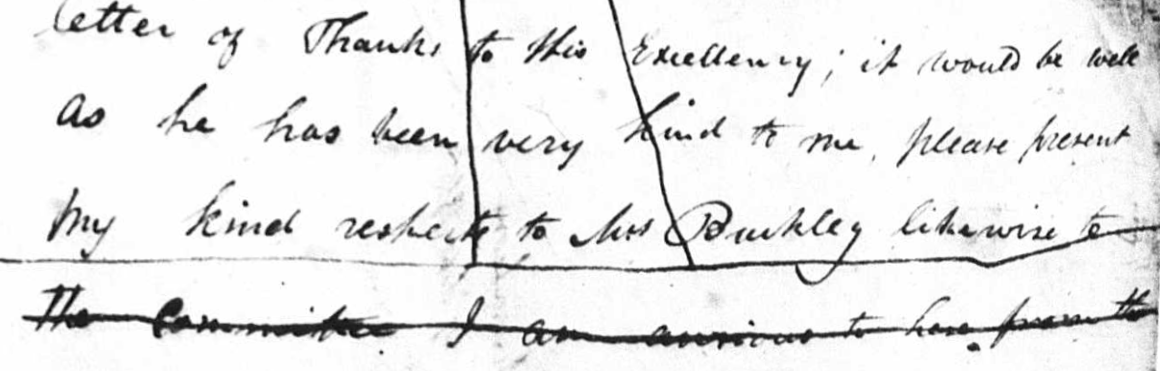 letter of Thanks to His Excellency; it would be well
as he has been very kind to me, please present
my kind respects to Mrs Buckley likewise to
The Committee I am anxious to hear from the